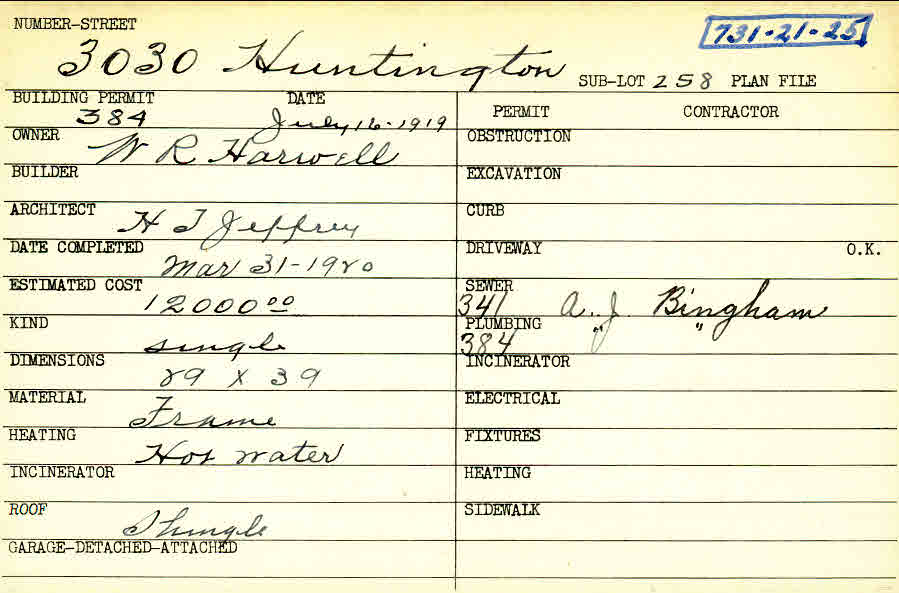 NUMBER-STREET
731-21-25
3030 Huntington
SUB-LOT 258 PLAN FILE
BUILDING PERMIT DATE
384 July 16-1919
PERMIT CONTRACTOR
OWNER
W R Harwell
OBSTRUCTION
BUILDER
EXCAVATION
ARCHITECT
H T Jeffrey
CURB
DATE COMPLETED
Mar 31-1920
DRIVEWAY O.K.
ESTIMATED COST
12000 00
SEWER
341 A. J. Bingham
KIND
single
PLUMBING
384 " "
DIMENSIONS
29 X 39
INCINERATOR
MATERIAL
Frame
ELECTRICAL
HEATING
Hot water
FIXTURES
INCINERATOR
HEATING
ROOF
Shingle
SIDEWALK
GARAGE-DETACHED-ATTACHED